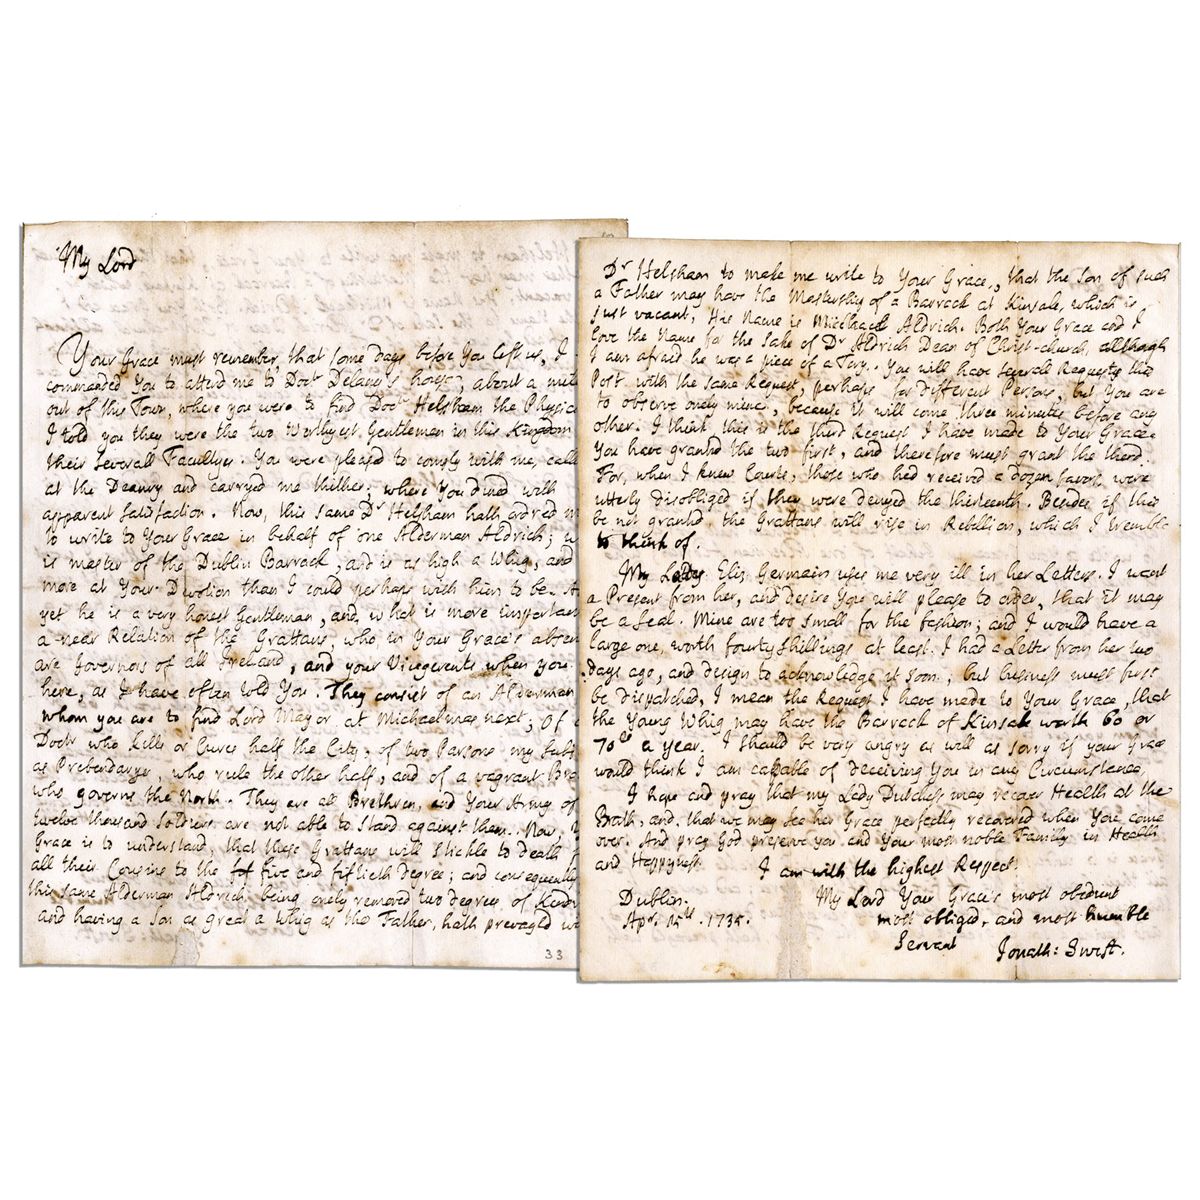 My Lord
Your Grace must remember, that some days before You left us, I
commanded You to attend me to Doctr Delany's house, about a mile
out of this Town, where you were to find Doctr Helsham the Physicia
I told you they were the two worthyest Gentleman in this Kingdom
their severall Facultyes. You were pleased to comply with me, calle
at the Deanry and carryed me thither; where You dined with
apparent Satisfaction. Now, this same Dr Helsham hath ordred m
to write to Your Grace in behalf of one Alderman Aldrich; w
is master of the Dublin Barrack, and is as high a Whig, and
more at Your Devotion than I could perhaps wish him to be.
yet he is a very honest Gentleman, and, what is more important
a near Relation of the Grattans, who in Your Grace's absen
are Governors of all Ireland, and your Vicegerents when you
here, as I have often told You. They consist of an Alderman
whom you are to find Lord Mayor at Michaelmas next; Of
Doctr who kills or Cures half the City, of two Parsons my Subj
as Prebendaryes, who rule the other half, and of a vagrant Bro
who governs the North. They are all Brethren, and Your Army of
twelve thousand Soldiers are not able to stand against them. Now,
Grace is to understand, that these Grattans will stickle to death f
all their Cousins to the five and fiftieth degree; and consequentl
this same Alderman Aldrich being onely removed two degrees of Kindr
and having a Son as great a Whig as the Father, hath prevayled w
33
Dr Helsham to make me write to Your Grace, that the Son of such
a Father may have the Mastership of a Barrack at Kinsale, which is
just vacant, His Name is Michael Aldrich. Both Your Grace and I
love the Name for the sake of Dr Aldrich Dean of Christ-church, although
I am afraid he was a piece of a Tory. You will have severall Requests this
Post. with the same Request, perhaps for different Persons, but You are
to observe onely mine, because it will come three minutes before any
other. I think this is the third Request I have made to Your Grace.
You have granted the two first, and therefore must grant the third.
For, when I knew Courts, those who had received a dozen favors, were
utterly disobliged if they were denyed the thirteenth. Besides if this
be not granted the Grattans will rise in Rebellion, which I tremble
to think of.
My Lady Eliz. Germain uses me very ill in her Letters. I want
a Present from her, and desire You will please to order, that it may
be a Seal. Mine are too small for the fashion; and I would have a
large one, worth fourty shillings at least. I had a Letter from her two
days ago, and design to acknowledge it soon, but business must first
be dispatched, I mean the Request I have made to Your Grace, that
the Young Whig may have the Barrack of Kinsale worth 60 or
70ll a year. I should be very angry as well as sorry if your Grace
would think I am capable of deceiving You in any Circumstance.
I hope and pray that my Lady Dutchess may recover Health at the
Bath, and, that we may see her Grace perfectly recovered when You come
over. And pray God preserve you, and Your most noble Family in Health
and Happyness.
I am with the highest Respect.
Dublin.
Apr. 15th. 1735.
My Lord Your Grace's most obedient
most obliged, and most humble
Servant
Jonath: Swift.